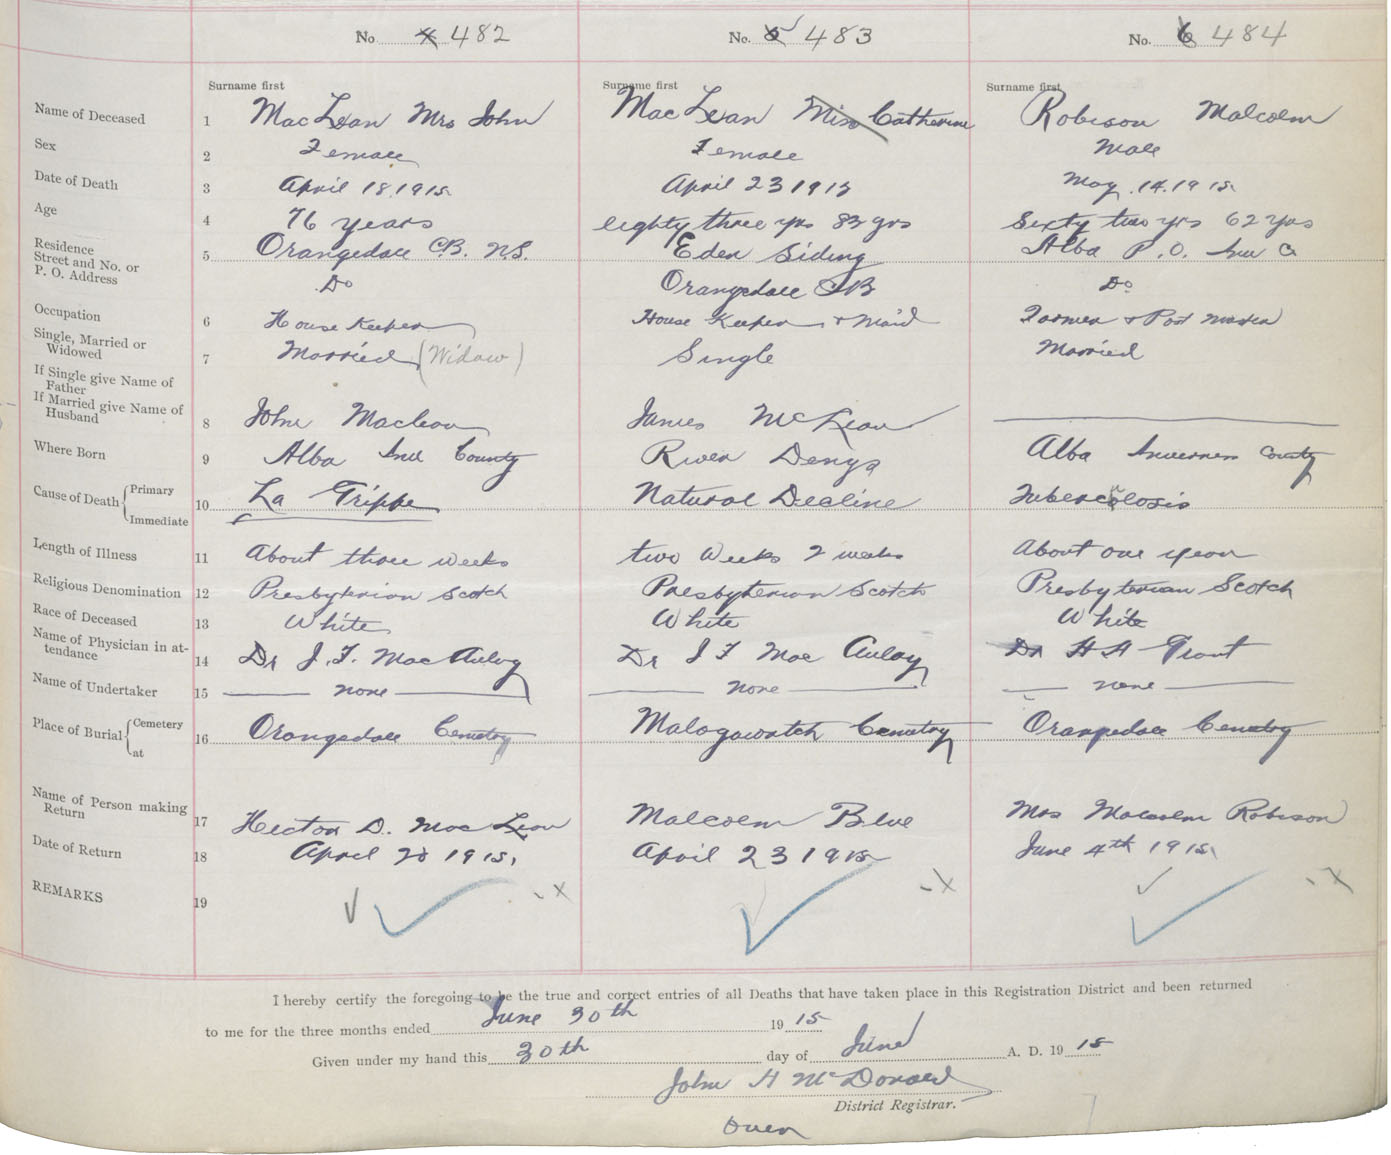 No. 4 482 No. 5 483 No. 6 484
Surname first Surname first Surname first
Name of Deceased 1 MacLean Mrs John MacLean Miss Catherine Robison Malcolm
Sex 2 Female Female Male
Date of Death 3 April 18 1915 April 23 1915 May 14 1915
Age 4 76 years eighty three yrs 83 yrs Sixty two yrs 62 yrs
Residence
Street and No. or
P. O. Address
5 Orangedale C.B. N.S. Eden Siding Alba P.O. Inv Co
Do Orangedale CB Do
Occupation 6 House Keeper House Keeper + Maid Farmer + Post Master
Single, Married or
Widowed
7 Married (Widow) Single Married
If Single give Name of
Father
If Married give Name of
Husband
8 John Maclean James McLean
Where Born 9 Alba Inv County River Denys Alba Inverness County
Cause of Death { Primary
Immediate
10 La Grippe Natural Decline Tuberculosis
Length of Illness 11 About three weeks two weeks 2 weeks About one year
Religious Denomination 12 Presbyterian Scotch Presbyterian Scotch Presbyterian Scotch
Race of Deceased 13 White White White
Name of Physician in at-
tendance
14 Dr J. F. MacAulay Dr J F MacAulay Dr H A Grant
Name of Undertaker 15 none none none
Place of Burial { Cemetery
at
16 Orangedale Cemetry Malagawatch Cemetry Orangedale Cemetry
Name of Person making
Return
17 Hector D. MacLean Malcolm Blue Mrs Malcolm Robison
Date of Return 18 April 20 1915. April 23 1915 June 4th 1915
REMARKS 19
I hereby certify the foregoing to be the true and correct entries of all Deaths that have taken place in this Registration District and been returned
to me for the three months ended June 30th 1915
Given under my hand this 30th day of June A. D. 1915
John H McDonald
District Registrar.
Over